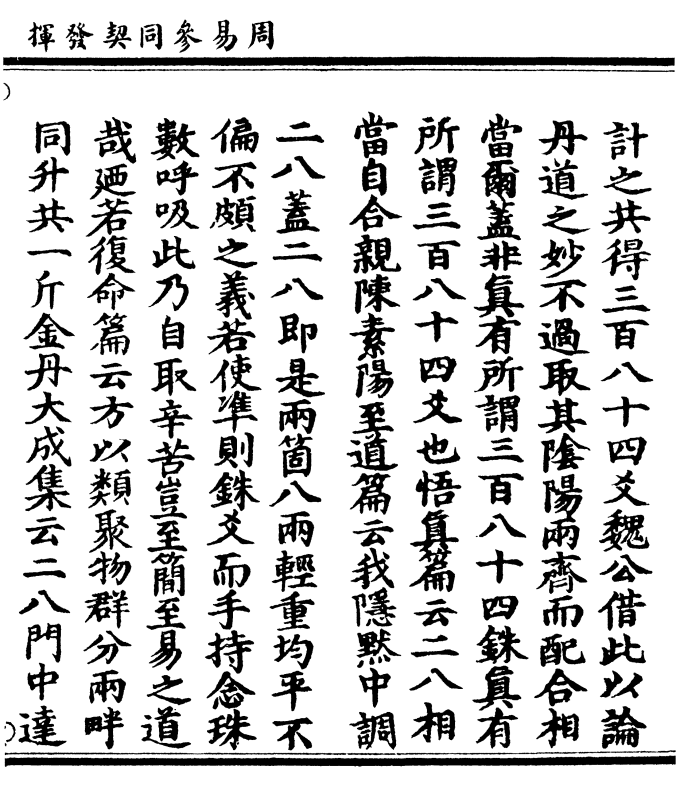 周易參同契發揮
計之共得三百八十四爻魏公借此以論
丹道之妙不過取其陰陽兩齊而配合相
當爾蓋非真有所謂三百八十四銖真有
所謂三百八十四爻也悟真篇云二八相
當自合親陳素陽至道篇云我隱默中調
二八蓋二八即是兩箇八兩輕重均平不
偏不頗之義若使準則銖爻而手持念珠
數呼吸此乃自取辛苦豈至簡至易之道
哉廼若復命篇云方以類聚物群分兩畔
同升共一斤金丹大成集云二八門中達